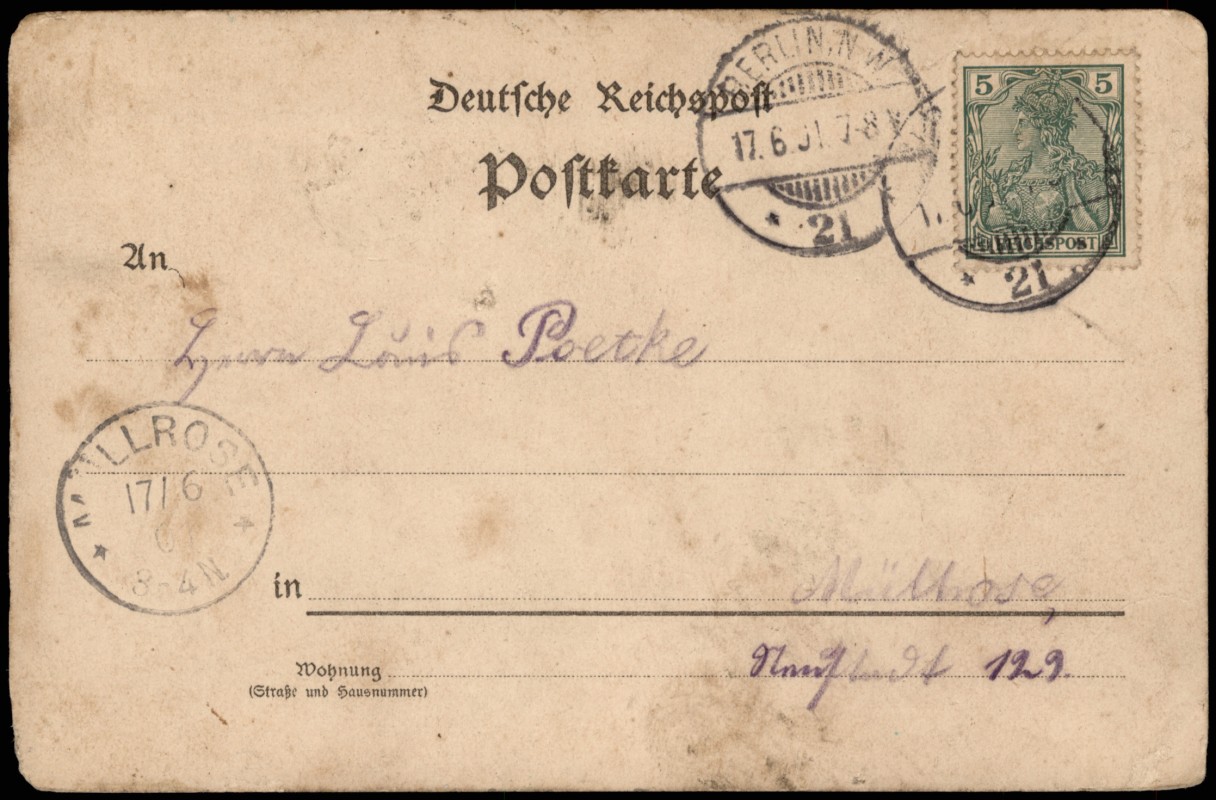 Deutsche Reichspost
Postkarte
BERLIN, N.W.
17.6.01. 7-8 V
* 21
5 5
REICHSPOST
* 21
An
Herrn Louis Poetke
MÜLLROSE
17/6
8-4N
in Müllrose,
Wohnung Neustadt 129.
(Straße und Hausnummer)